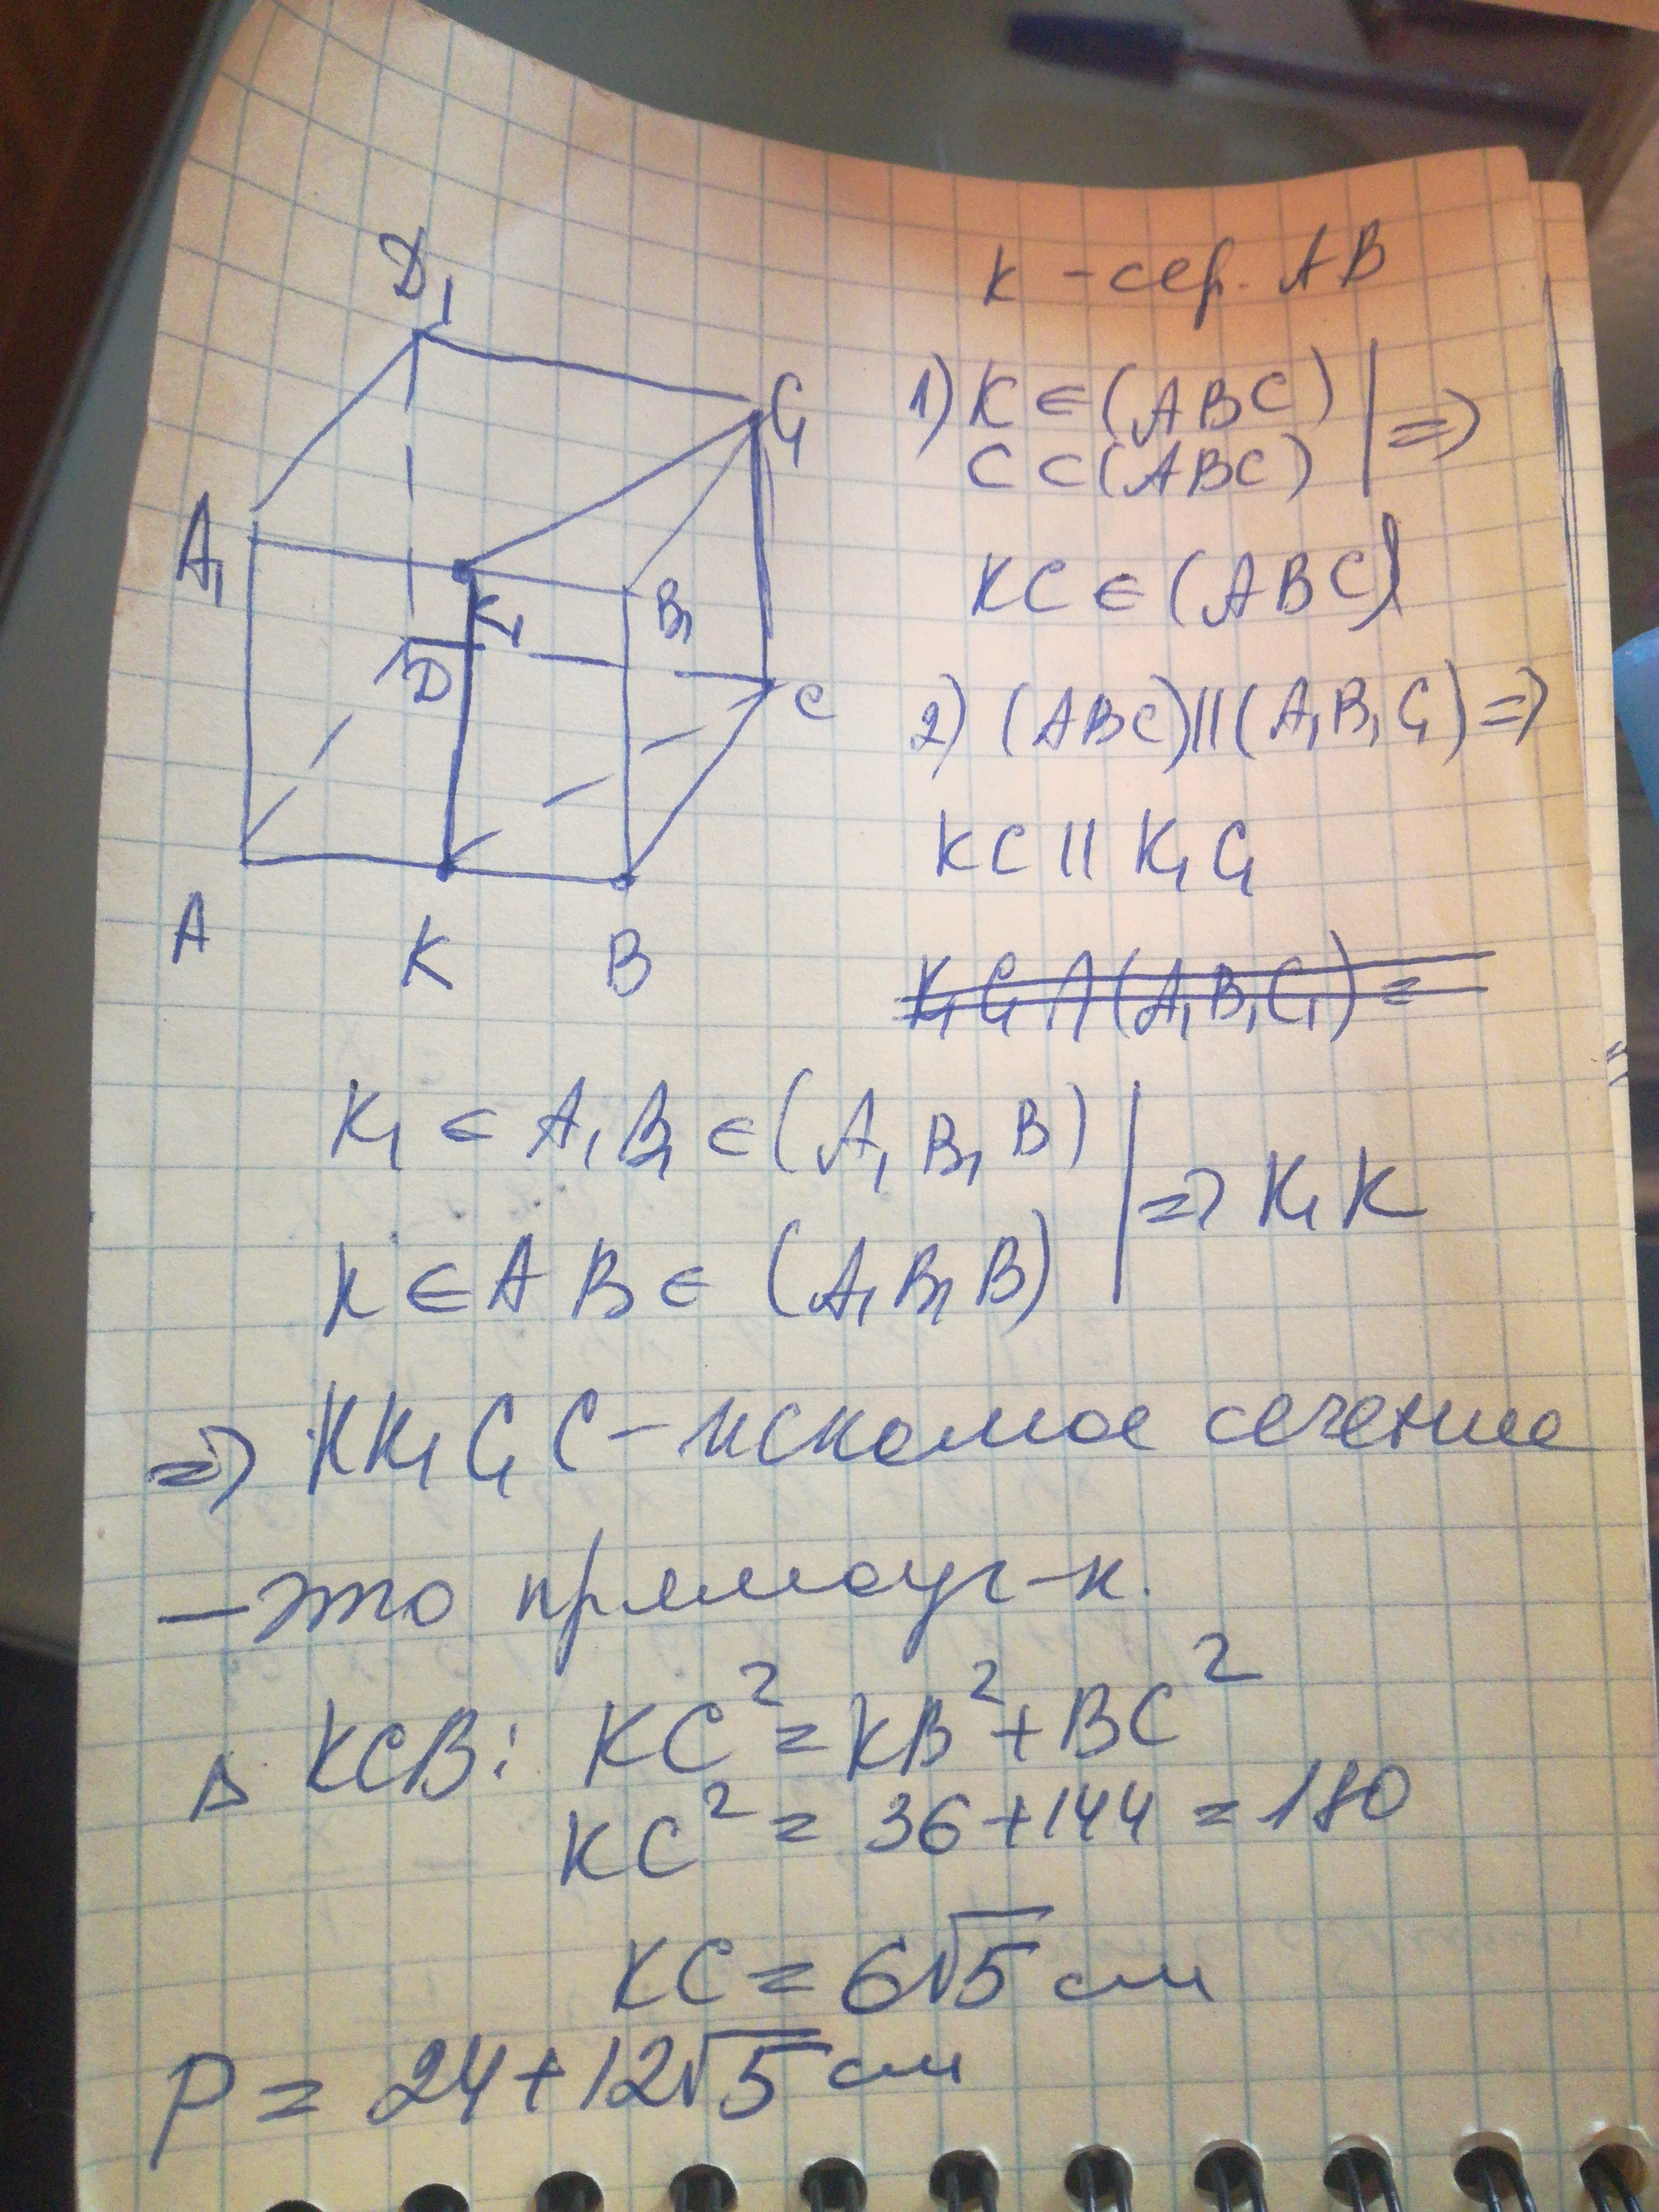 D₁
C₁
A₁
K₁
B₁
D
C
A
K
B
K - сер. AB
1) K ∈ (ABC) | =>
C ⊂ (ABC)
KC ∈ (ABC)
2) (ABC) || (A₁B₁C₁) =>
KC || K₁C₁
K₁C₁ ∩ (A₁B₁C₁) =
K₁ ∈ A₁B₁ ∈ (A₁B₁B) | => K₁K
K ∈ AB ∈ (A₁B₁B)
=> KK₁C₁C - искомое сечение
- это прямоуг-к.
Δ KCB: KC² = KB² + BC²
KC² = 36 + 144 = 180
KC = 6√5 см
P = 24 + 12√5 см